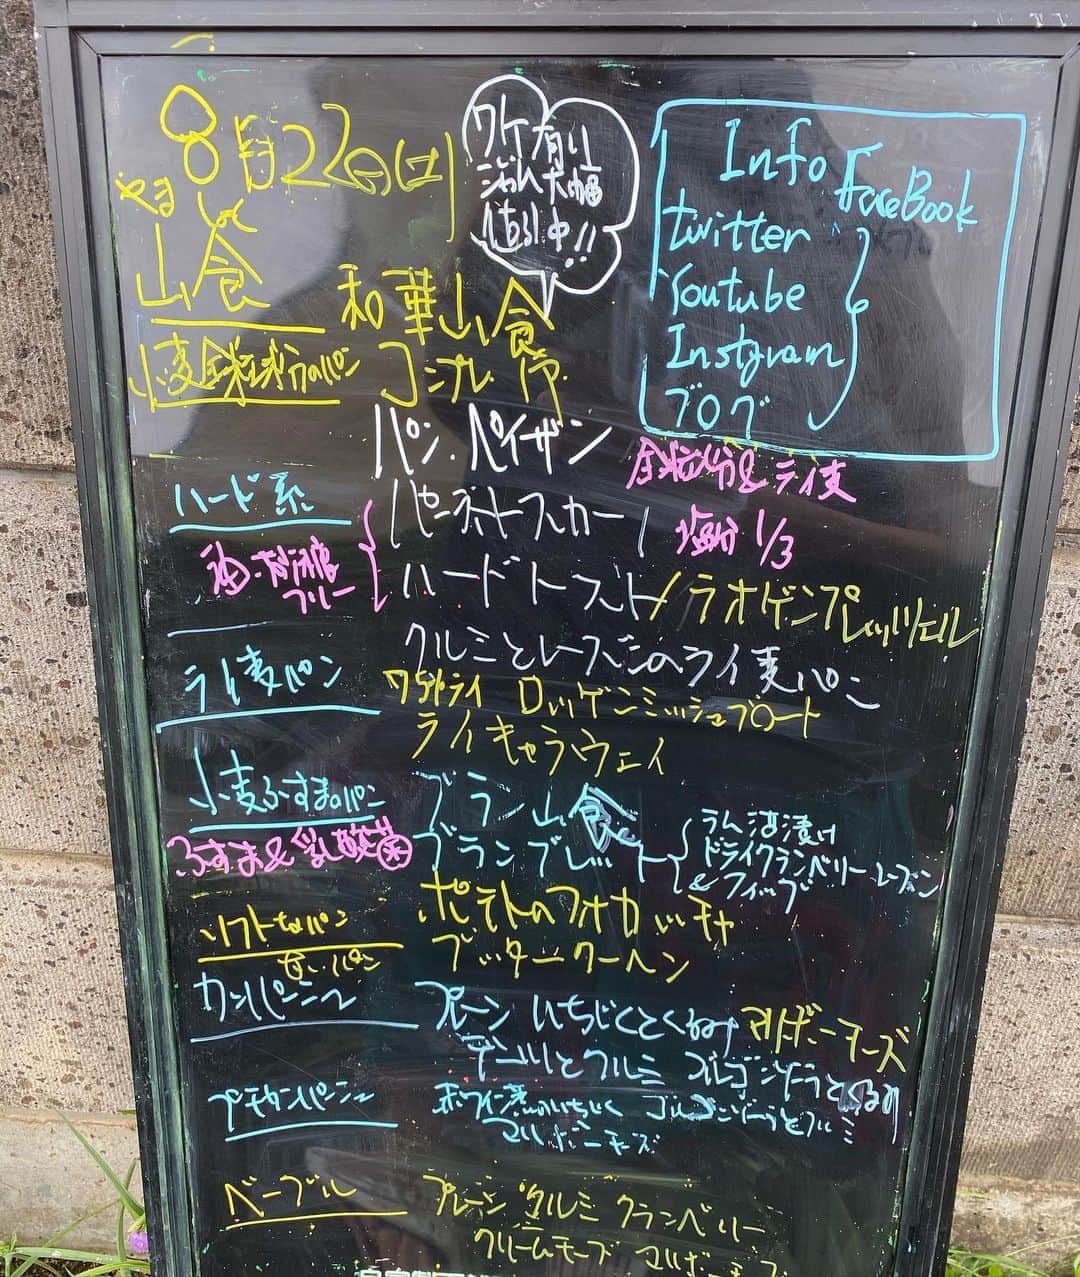 8月22日(日)
やましょく
山食
ワケ有り
大幅
値引中!!
Info FaceBook
twitter
Youtube
Instgram
ブログ
和華山食
小麦全粒粉のパン
コンプレ
パン・ペイザン
全粒粉&ライ麦
ハード系
油・砂糖
フリー
パーネトスカーノ
塩分1/3
ハードトースト/ラオゲンプレッツェル
クルミとレーズンのライ麦パン
ライ麦パン
ロッゲンミッシュブロート
ライキャラウェイ
小麦ふすまのパン
ブラン山食
ふすま&乳酸菌
ブランブレット
ラム酒漬け
ドライクランベリーレーズン
&フィッグ
ソフトなパン
ポテトのフォカッチャ
ブッタークーヘン
カンパーニュ
プレーン いちじくとくるみ マリボーチーズ
デーツとクルミ ゴルゴンゾーラとくるみ
プチカンパーニュ
赤ワイン漬いちじく ゴルゴンゾーラとクルミ
マリボーチーズ
ベーグル
プレーン クルミ クランベリー
クリームチーズ マリボーチーズ